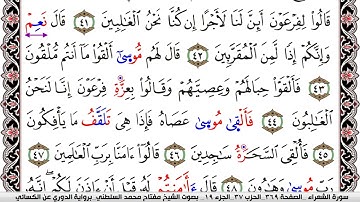 قَالُوا۟ لِفِرْعَوْنَ أَىِٕنَّ لَنَا لَأَجْرًا إِن كُنَّا نَحْنُ ٱلْغَٰلِبِينَ ٤١ قَالَ نَعِمْ
وَإِنَّكُمْ إِذًا لَّمِنَ ٱلْمُقَرَّبِينَ ٤٢ قَالَ لَهُم مُّوسَىٰٓ أَلْقُوا۟ مَآ أَنتُم مُّلْقُونَ
٤٣ فَأَلْقَوْا۟ حِبَالَهُمْ وَعِصِيَّهُمْ وَقَالُوا۟ بِعِزَّةِ فِرْعَوْنَ إِنَّا لَنَحْنُ
ٱلْغَٰلِبُونَ ٤٤ فَأَلْقَىٰ مُوسَىٰ عَصَاهُ فَإِذَا هِىَ تَلَقَّفُ مَا يَأْفِكُونَ
٤٥ فَأُلْقِىَ ٱلسَّحَرَةُ سَٰجِدِينَ ٤٦ قَالُوٓا۟ ءَامَنَّا بِرَبِّ ٱلْعَٰلَمِينَ ٤٧
رَبِّ مُوسَىٰ وَهَٰرُونَ ٤٨ قَالَ ءَا۬مَنتُمْ لَهُۥ قَبْلَ أَنْ ءَاذَنَ لَكُمْ إِنَّهُۥ
سورة الشعراء . الصفحة ٣٦٩ . الحزب ٣٧ . الجزء ١٩ . بصوت الشيخ مفتاح محمد السلطني . برواية الدوري عن الكسائي